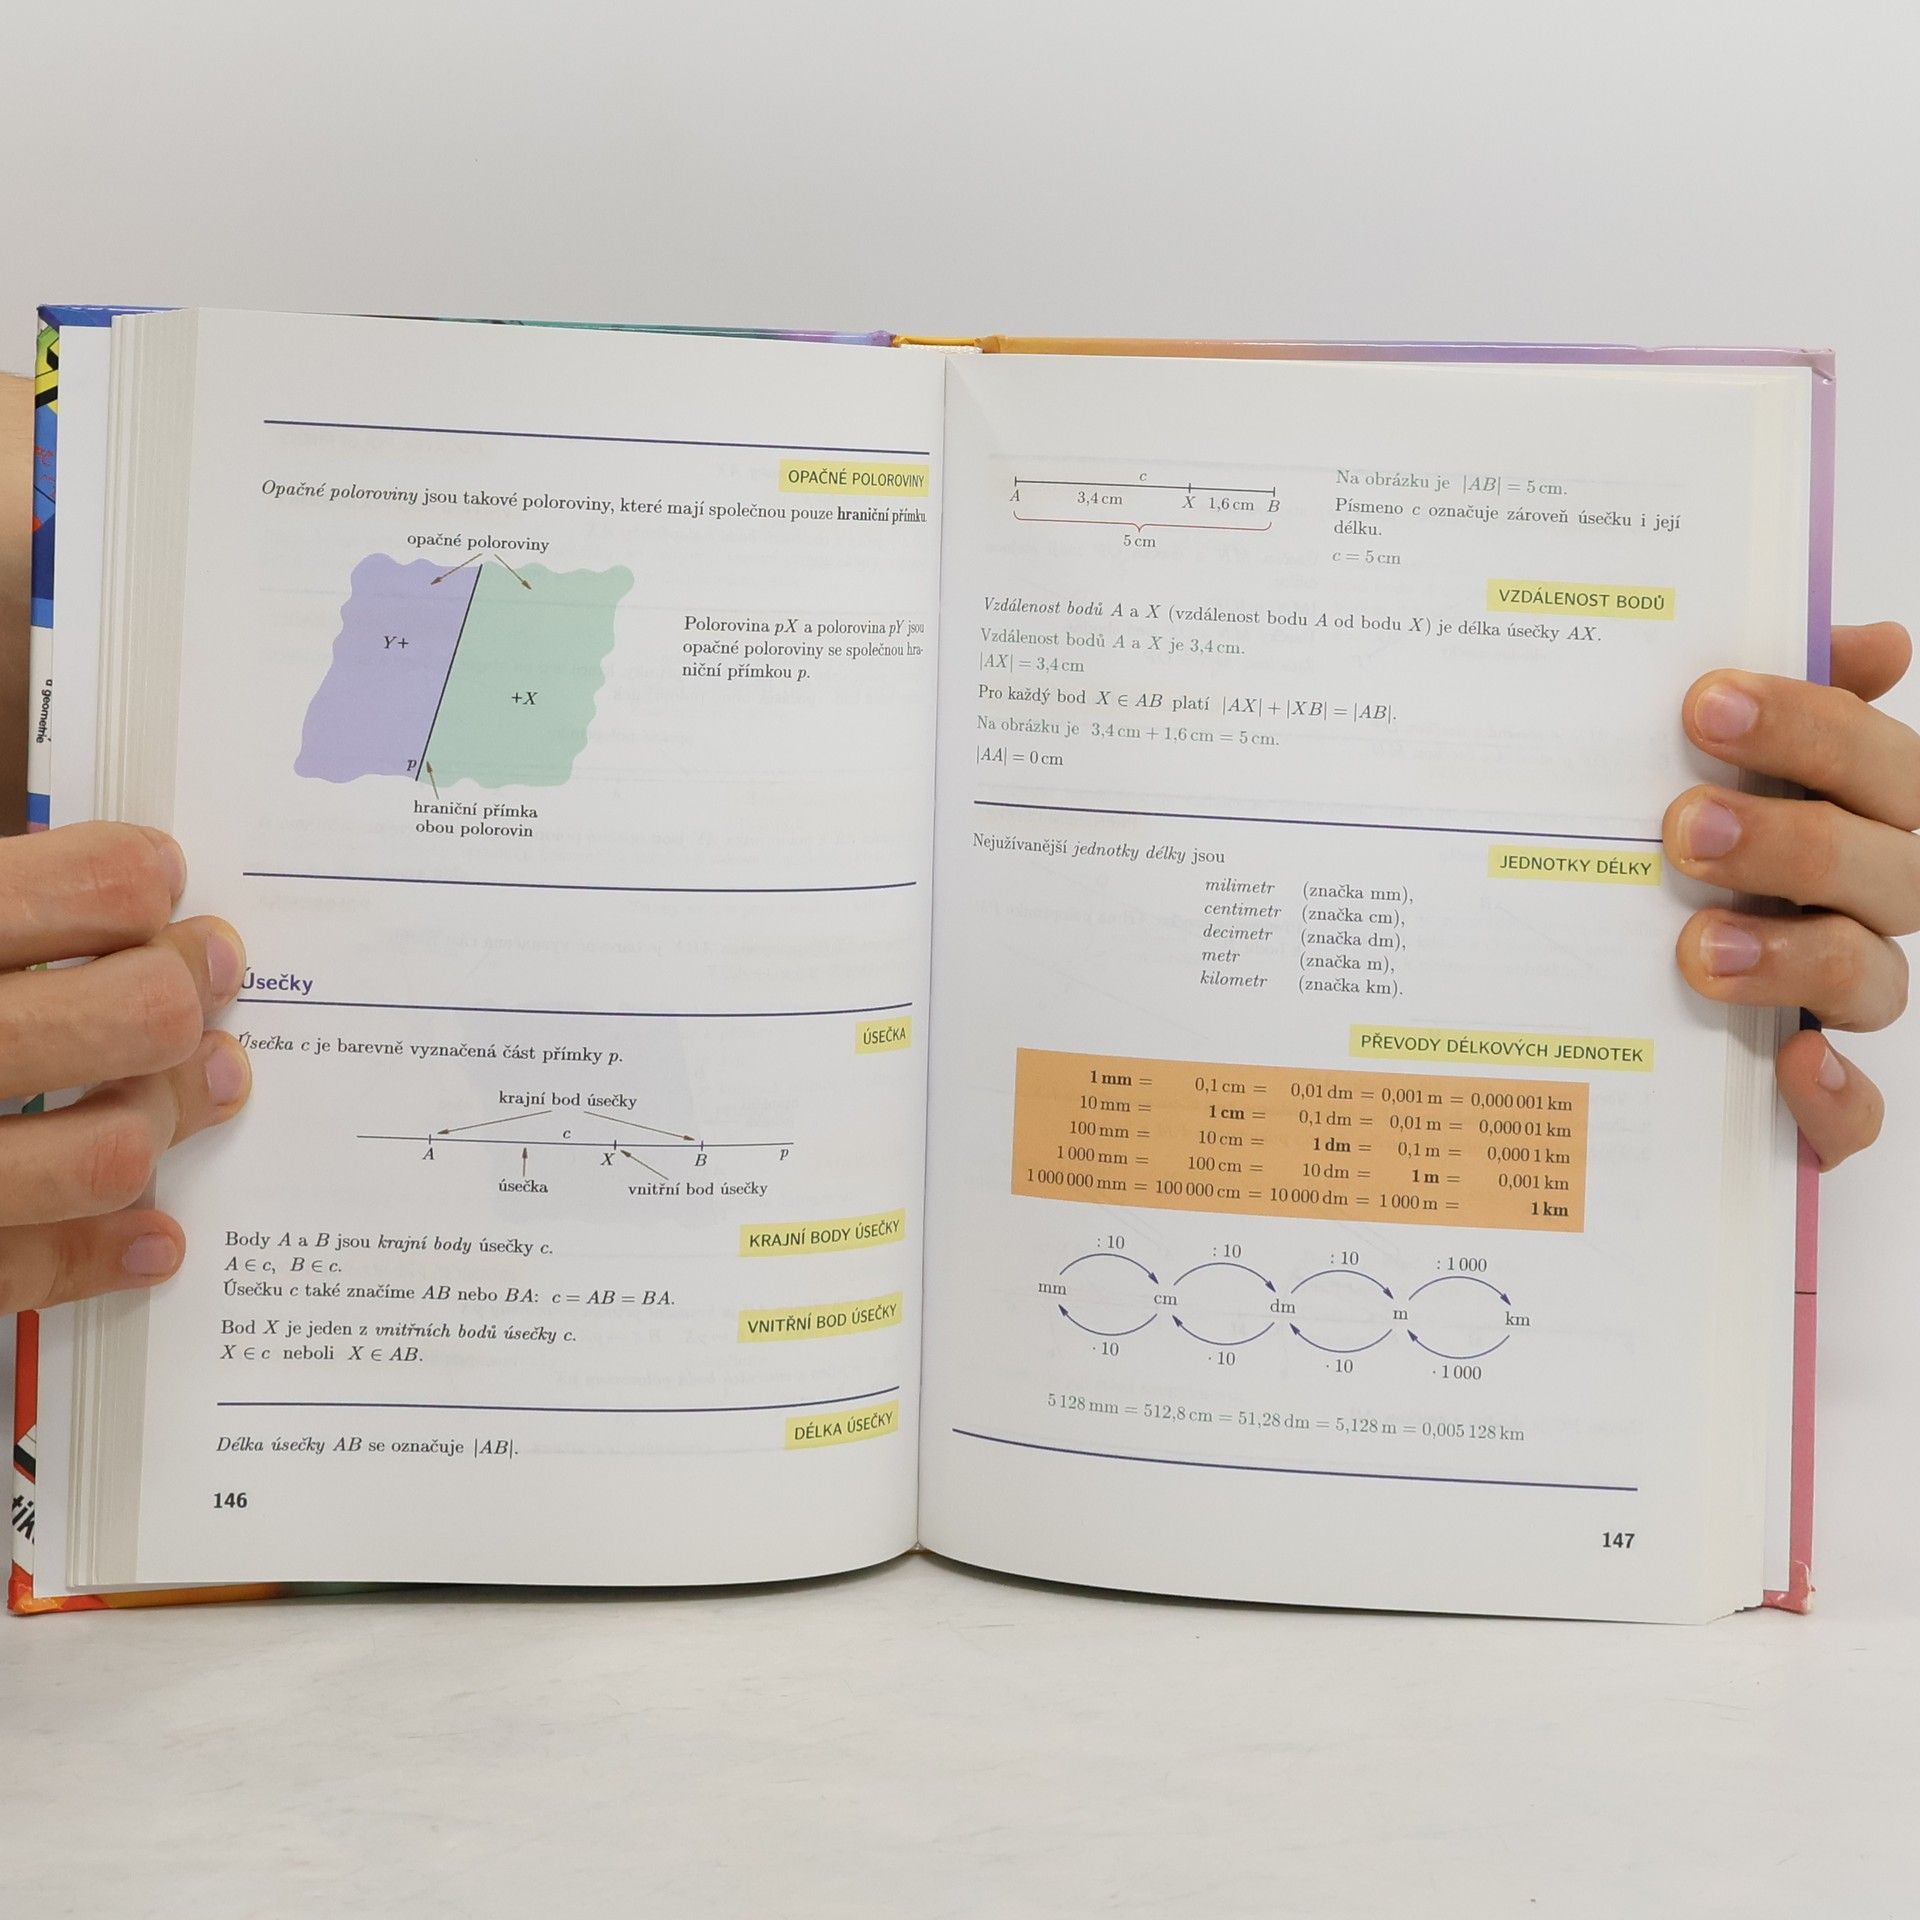 OPAČNÉ POLOROVINY
Opačné poloroviny jsou takové poloroviny, které mají společnou pouze hraniční přímku.
opačné poloroviny
Y+
+X
p
hraniční přímka
obou polorovin
Polorovina pX a polorovina pY jsou
opačné poloroviny se společnou hra-
niční přímkou p.
Úsečky
ÚSEČKA
Úsečka c je barevně vyznačená část přímky p.
krajní bod úsečky
c
A X B p
úsečka vnitřní bod úsečky
KRAJNÍ BODY ÚSEČKY
Body A a B jsou krajní body úsečky c.
A ∈ c, B ∈ c.
Úsečku c také značíme AB nebo BA: c = AB = BA.
VNITŘNÍ BOD ÚSEČKY
Bod X je jeden z vnitřních bodů úsečky c.
X ∈ c neboli X ∈ AB.
DÉLKA ÚSEČKY
Délka úsečky AB se označuje |AB|.
146
c
A 3,4 cm X 1,6 cm B
5 cm
Na obrázku je |AB| = 5 cm.
Písmeno c označuje zároveň úsečku i její
délku.
c = 5 cm
VZDÁLENOST BODŮ
Vzdálenost bodů A a X (vzdálenost bodu A od bodu X) je délka úsečky AX.
Vzdálenost bodů A a X je 3,4 cm.
|AX| = 3,4 cm
Pro každý bod X ∈ AB platí |AX| + |XB| = |AB|.
Na obrázku je 3,4 cm + 1,6 cm = 5 cm.
|AA| = 0 cm
JEDNOTKY DÉLKY
Nejužívanější jednotky délky jsou
milimetr (značka mm),
centimetr (značka cm),
decimetr (značka dm),
metr (značka m),
kilometr (značka km).
PŘEVODY DÉLKOVÝCH JEDNOTEK
1 mm = 0,1 cm = 0,01 dm = 0,001 m = 0,000 001 km
10 mm = 1 cm = 0,1 dm = 0,01 m = 0,000 01 km
100 mm = 10 cm = 1 dm = 0,1 m = 0,000 1 km
1 000 mm = 100 cm = 10 dm = 1 m = 0,001 km
1 000 000 mm = 100 000 cm = 10 000 dm = 1 000 m = 1 km
: 10 : 10 : 10 : 1 000
mm cm dm m km
· 10 · 10 · 10 · 1 000
5 128 mm = 512,8 cm = 51,28 dm = 5,128 m = 0,005 128 km
147
a geometrie